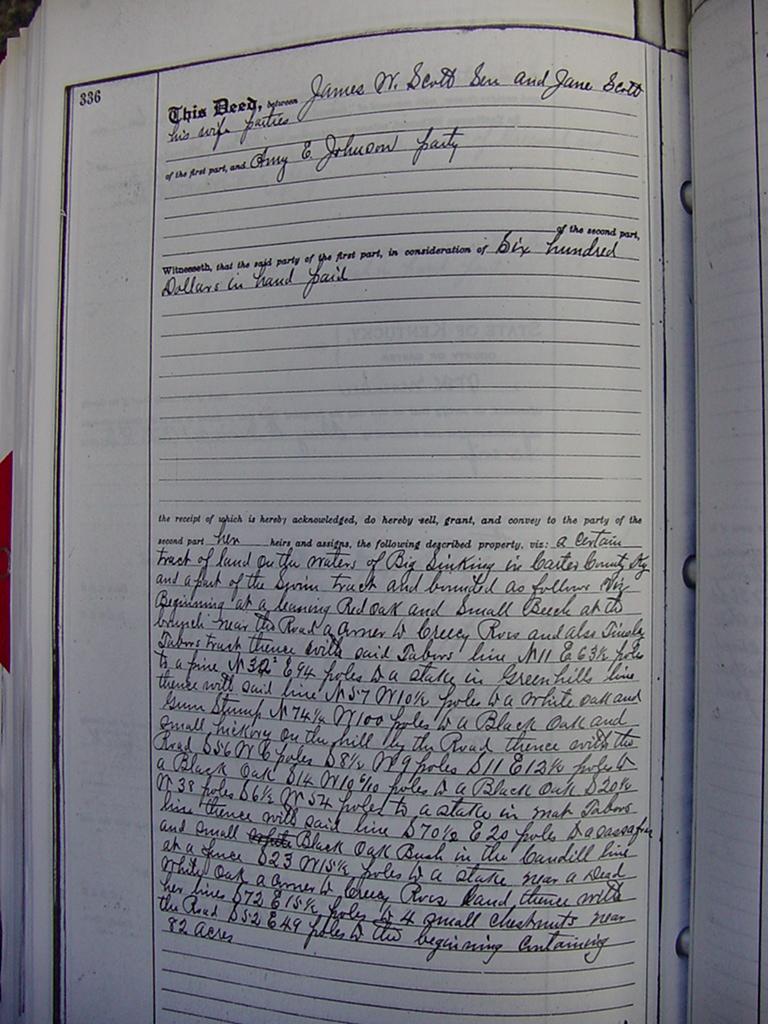 336
This Deed, between James W. Scott Sen and Jane Scott
his wife parties
of the first part, and Amy E. Johnson party
of the second part,
Witnesseth, that the said party of the first part, in consideration of Six hundred
Dollars in hand paid
the receipt of which is hereby acknowledged, do hereby sell, grant, and convey to the party of the
second part her heirs and assigns, the following described property, viz: a certain
tract of land on the waters of Big Sinking in Carter County Ky
and a part of the tract and bounded as follows Viz
Beginning at a leaning Red Oak and Small Beech at the
branch near the Road a corner to Creecy Ross and also Tinsley
Tabors tract thence with said Tabors line N 11 E 63½ poles
to a pine N 32 E 94 poles to a stake in Greenhills line
thence with said line N 57 W 10½ poles to a White Oak and
Gum Stump N 74¼ W 100 poles to a Black Oak and
small hickory on the hill by the Road thence with the
Road S 56 W 6 poles S 8½ W 9 poles S 11 E 12½ poles to
a Black Oak S 14 W 10 6/10 poles to a Black Oak S 20½
W 38 poles S 6½ W 54 poles to a stake in Mat Tabors
line thence with said line S 70½ E 20 poles to a sassafras
and small White Black Oak Bush in the Caudill line
at a fence S 23 W 15½ poles to a stake near a Dead
White Oak a corner to Creecy Ross land thence with
her lines S 72 E 15½ poles to 4 small chestnuts near
the Road S 52 E 49 poles to the beginning Containing
82 acres